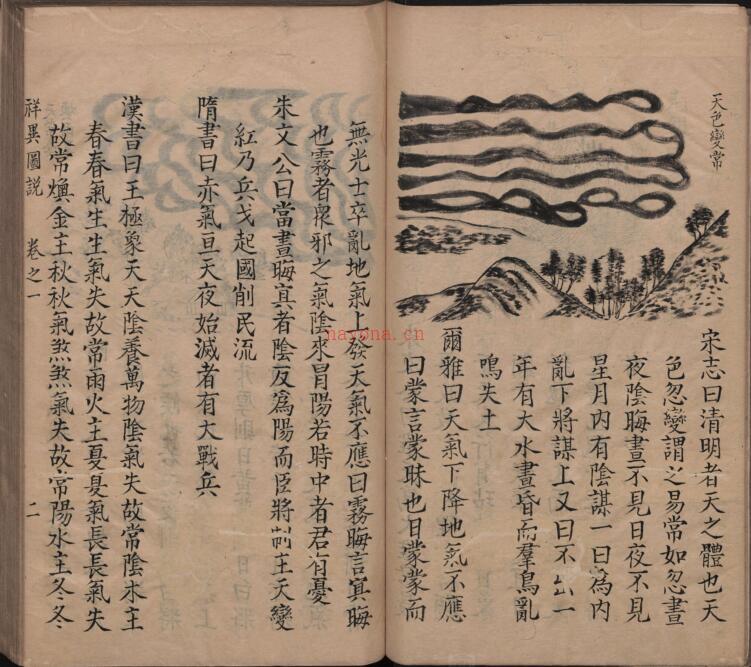 天色變常
宋志曰清明者天之體也天
色忽變謂之易常如忽晝
夜陰晦晝不見日夜不見
星月內有陰謀一曰為內
亂下將謀上又曰不出一
年有大水晝昏而羣鳥亂
鳴失土
爾雅曰天氣下降地氣不應
曰蒙言蒙昧也日蒙蒙而
無光士卒亂地氣上發天氣不應曰霧晦言㝠晦
也霧者衆邪之氣陰來冒陽若時中者君有憂
朱文公曰當晝晦㝠者陰反為陽而臣將制主天變
紅乃兵戈起國削民流
隋書曰赤氣亘天夜始滅者有大戰兵
漢書曰王極象天天陰養萬物陰氣失故常陰木主
春春氣生生氣失故常雨火主夏夏氣長長氣失
故常燠金主秋秋氣煞煞氣失故常陽水主冬冬
祥異圖説
卷之一
二
nayona.cn